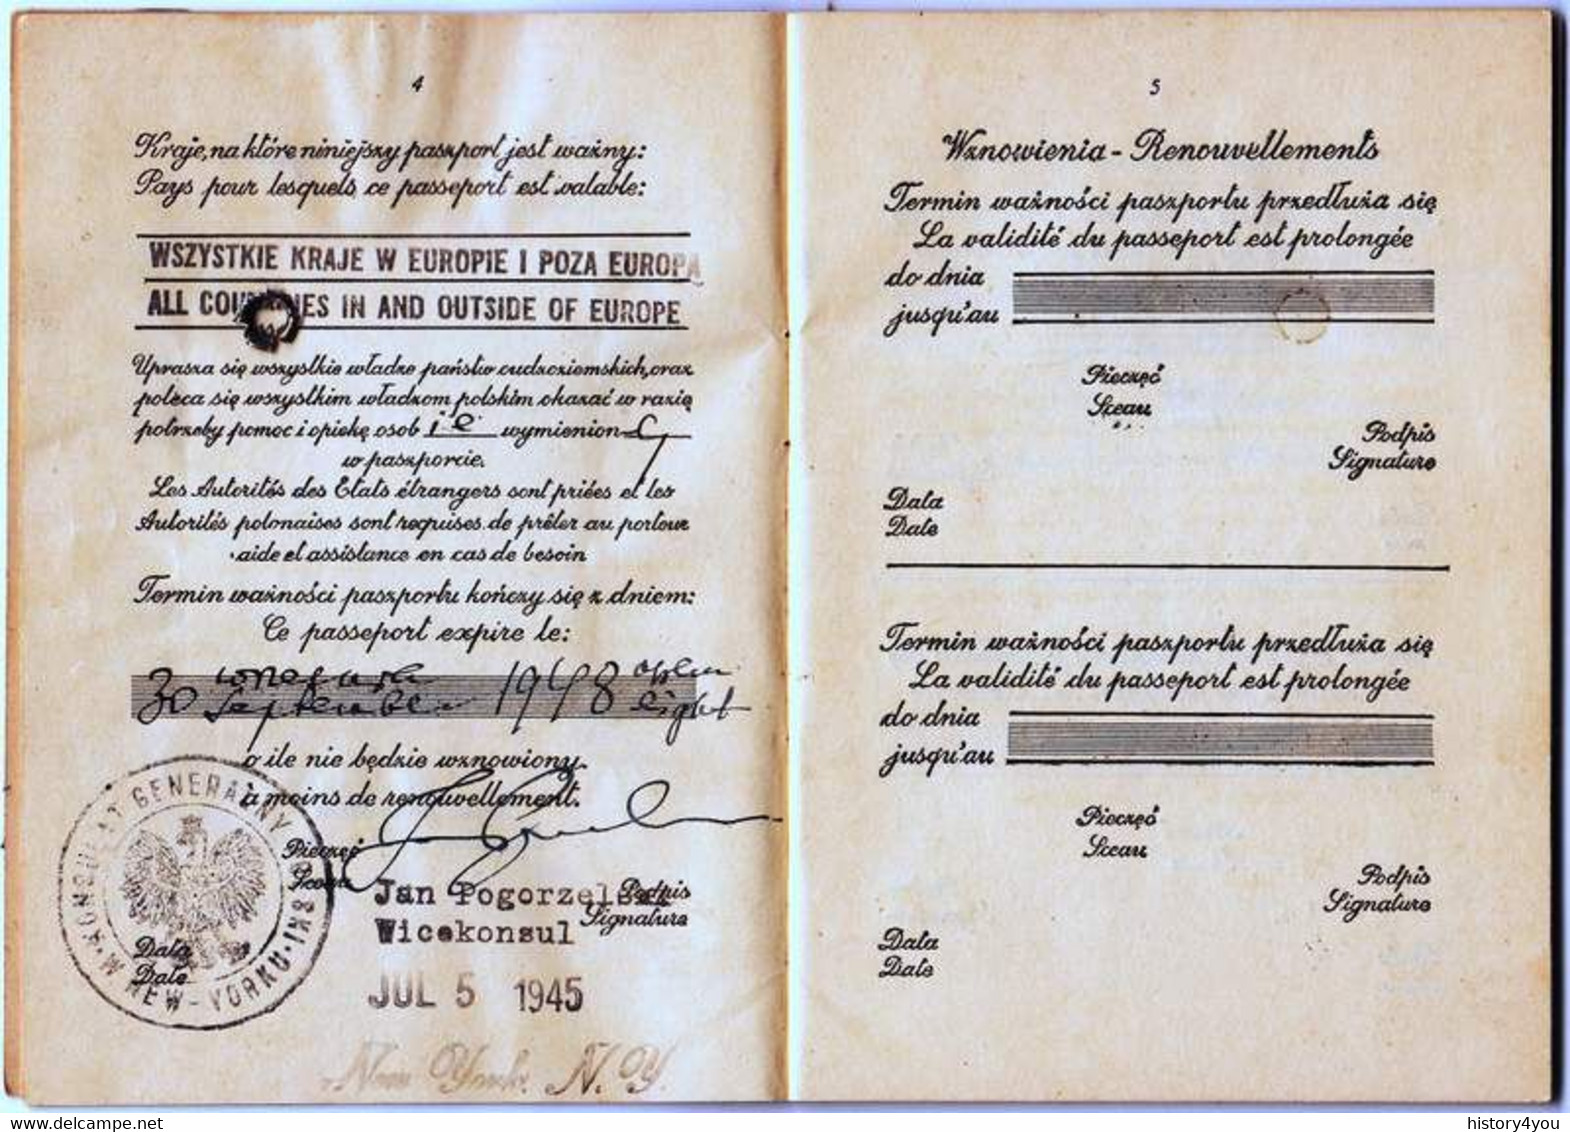 4
Kraje, na które niniejszy paszport jest ważny:
Pays pour lesquels ce passeport est valable:
WSZYSTKIE KRAJE W EUROPIE I POZA EUROPA
ALL COUNTRIES IN AND OUTSIDE OF EUROPE
Uprasza się wszystkie władze państw cudzoziemskich, oraz
poleca się wszystkim władzom polskim okazać w razie
potrzeby pomoc i opiekę osob ie wymienion ej
w paszporcie.
Les Autorités des Etats étrangers sont priées et les
Autorités polonaises sont requises de prêter au porteur
aide et assistance en cas de besoin
Termin ważności paszportu kończy się z dniem:
Ce passeport expire le:
30 września 1948 osiem
September eight
o ile nie będzie wznowiony.
à moins de renouvellement.
KONSULAT GENERALNY
W NEW-YORKU
Pieczęć
Sceau
Jan Pogorzelski
Podpis
Wicekonsul
Signature
Data
Date
JUL 5 1945
New York, N.Y.
5
Wznowienia - Renouvellements
Termin ważności paszportu przedłuża się
La validité du passeport est prolongée
do dnia
jusqu'au
Pieczęć
Sceau
Podpis
Signature
Data
Date
Termin ważności paszportu przedłuża się
La validité du passeport est prolongée
do dnia
jusqu'au
Pieczęć
Sceau
Podpis
Signature
Data
Date
history4you